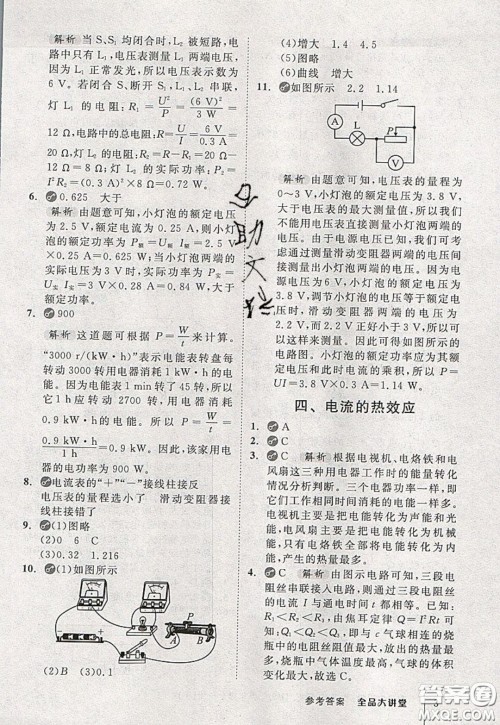 解析 当 S、S₁ 均闭合时,L₂ 被短路,电
路中只有 L₁,电压表测量 L₁ 两端电压,
灯 L₁ 正常发光,所以电压表示数为
6 V。若闭合 S、断开 S₁,L₁、L₂ 串联,
灯 L₁ 的电阻:R₁=U²/P=(6 V)²/3 W=
12 Ω,电路中的总电阻:R=U/I=6 V/0.3 A=
20 Ω,灯 L₂ 的电阻:R₂=R-R₁=20 Ω-
12 Ω=8 Ω,灯 L₂ 的实际功率:P₂=
I²R₂=(0.3 A)²×8 Ω=0.72 W。
6. 0.625 大于
解析 由题意可知,小灯泡的额定电压
为 2.5 V,额定电流为 0.25 A,则小灯
泡的额定功率 P额=U额I额=2.5 V×
0.25 A=0.625 W;当小灯泡两端的实
际电压为 3 V 时,小灯泡的实际功率
P实=U实I实=3 V×0.28 A=0.84 W,大
于额定功率。
7. 900
解析 这道题可根据 P=W/t 来计算。
“3000 r/(kW·h)”表示电能表转盘每
转动 3000 转用电器消耗 1 kW·h 的
电能。电能表 1 min 转了 45 转,所以
它 1 h 应转动 2700 转,用电器消耗
0.9 kW·h 的电能,则 P=W/t=
0.9 kW·h/1 h=0.9 kW。因此,该家用电器
的电功率为 900 W。
8. 电流表的“+”“-”接线柱接反
电压表的量程选小了 滑动变阻器接
线柱接错了
9. (1)图略
(2)0 6 C
(3)0.32 1.216
10. (1)如图所示
P
A B
(2)B (3)0.1
(4)增大 1.4 4.5
(5)图略
(6)曲线 增大
11. 如图所示 2.2 1.14
A L P V
解析 由题意可知,电压表的量程为
0~3 V,小灯泡的额定电压大于电压
表的最大测量值,所以我们不能用电
压表直接测量小灯泡的额定电压。由
于电源电压已知,我们可考虑采用电
压表通过测量滑动变阻器两端的电压
间接测量出小灯泡两端的电压。因为
电源电压为 6 V,小灯泡的额定电压为
3.8 V,调节小灯泡的电压等于额定电
压时,滑动变阻器两端的电压为
2.2 V,电压表正好小于 3 V,可以直接
测量出来。因此可以得出如图所示的
电路图。小灯泡的额定功率为额定电
压和此时电流的乘积,所以 P=
UI=3.8 V×0.3 A=1.14 W。
四、电流的热效应
1. A
2. A
3. C 解析 根据电视机、电烙铁和电
风扇这三种用电器工作时的能量转化
情况分析判断。三个电器功率一样,
工作相同时间消耗的电能一样多。电
视机主要是把电能转化为声能和光
能,电风扇主要是把电能转化为机械
能,电烙铁主要是把电能转化为内能,
所以电烙铁产生的热量最多。
4. C 解析 由图示电路可知,三段电
阻丝串联接入电路,则通过三段电阻
丝的电流 I 与通电时间 t 都相等。已知:
R₁<R₂<R₃,由焦耳定律 Q=I²Rt 可
知:Q₁<Q₂<Q₃,由与气球相连的烧
瓶中的电阻丝阻值最大,产生的热量
最多,瓶中气体温度最高,气体膨胀程
度最大,气球体积变得最大。
参考答案 全品大讲堂